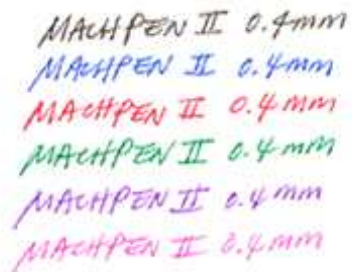 MACHPEN II 0.4mm
MACHPEN II 0.4mm
MACHPEN II 0.4mm
MACHPEN II 0.4mm
MACHPEN II 0.4mm
MACHPEN II 0.4mm